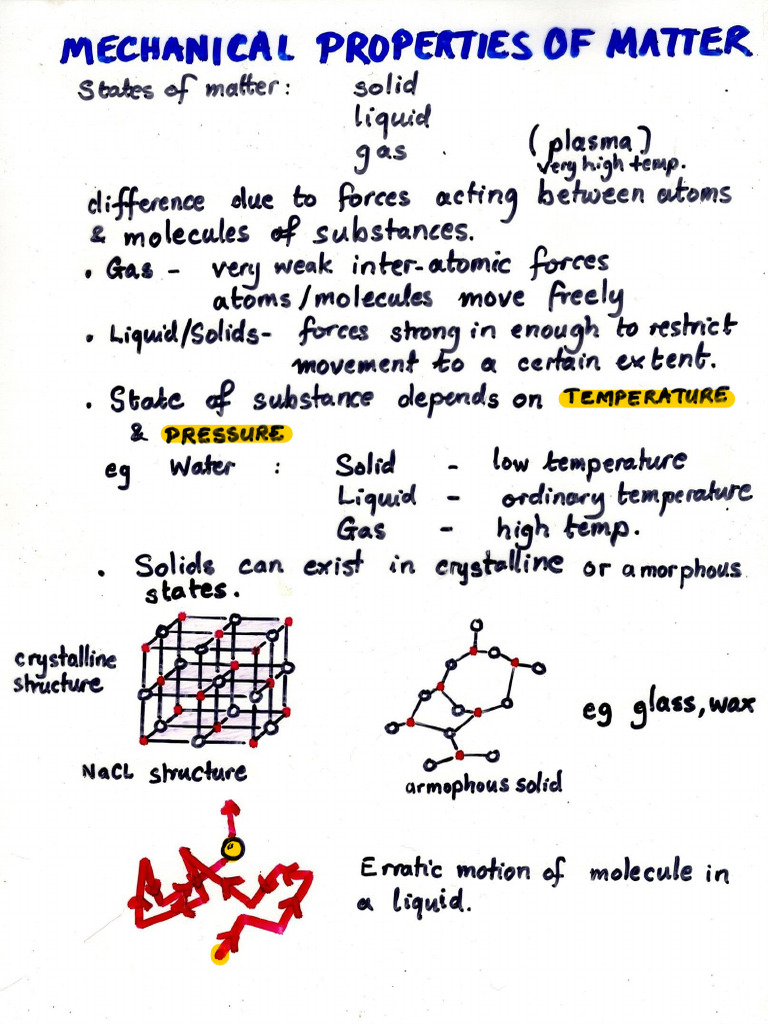 MECHANICAL PROPERTIES OF MATTER
States of matter: solid
liquid
gas (plasma)
very high temp.
difference due to forces acting between atoms
& molecules of substances.
• Gas - very weak inter-atomic forces
atoms/molecules move freely
• Liquid/Solids- forces strong in enough to restrict
movement to a certain extent.
• State of substance depends on TEMPERATURE
& PRESSURE
eg Water : Solid - low temperature
Liquid - ordinary temperature
Gas - high temp.
• Solids can exist in crystalline or amorphous
states.
crystalline
structure
eg glass, wax
NaCL structure
armophous solid
Erratic motion of molecule in
a liquid.